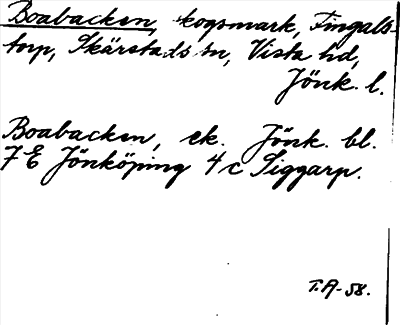 Boabacken, kogsmark, Fingals-
torp, Skärstads sn, Vista hd,
Jönk. l.
Boabacken, ek. Jönk. bl.
7 E Jönköping 4 c Siggarp.
T.A-58.